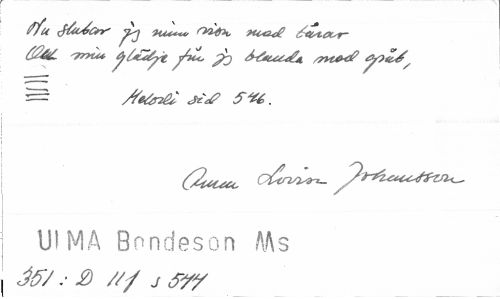 Nu slutar jg minn visa med tårar
Och min glädje får jg blanda med gråt,
Melodi sid 546.
Anna Lovisa Johansson
ULMA Bondeson Ms
351 : D 11f s 544